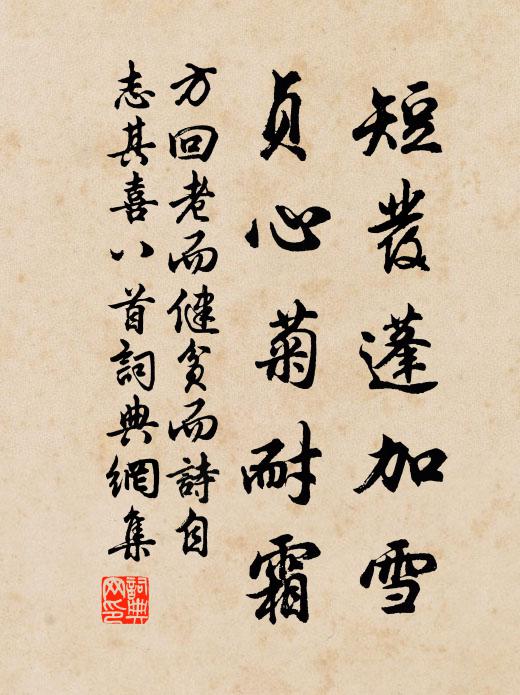 短發蓬加雪
貞心菊耐霜
方回老而健貧而詩自
志其喜八首詞典網集
詞典網印